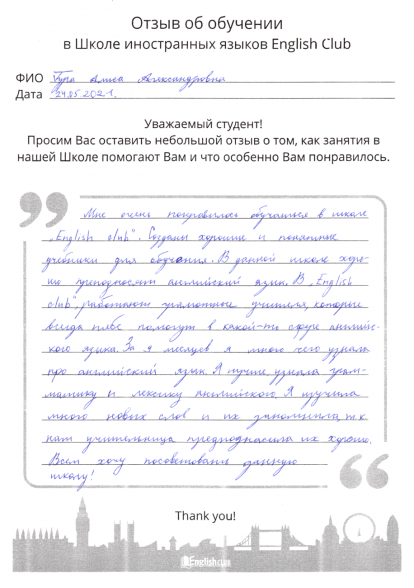 Отзыв об обучении
в Школе иностранных языков English Club
ФИО Гура Алиса Александровна
Дата 24.05.2021.
Уважаемый студент!
Просим Вас оставить небольшой отзыв о том, как занятия в
нашей Школе помогают Вам и что особенно Вам понравилось.
Мне очень понравилось обучаться в школе
„English club". Созданы хорошие и понятные
учебники для обучения. В данной школе хоро-
шо преподносят английский язык. В „English
club", работают грамотные учителя, которые
всегда тебе помогут в какой-то сфере английс-
кого языка. За 9 месяцев я много чего узнала
про английский язык. Я лучше узнала грам-
матику и лексику английского. Я изучила
много новых слов и их запомнила, т.к
нам учительница преподносила их хорошо.
Всем хочу посоветовать данную
школу!
Thank you!
English club